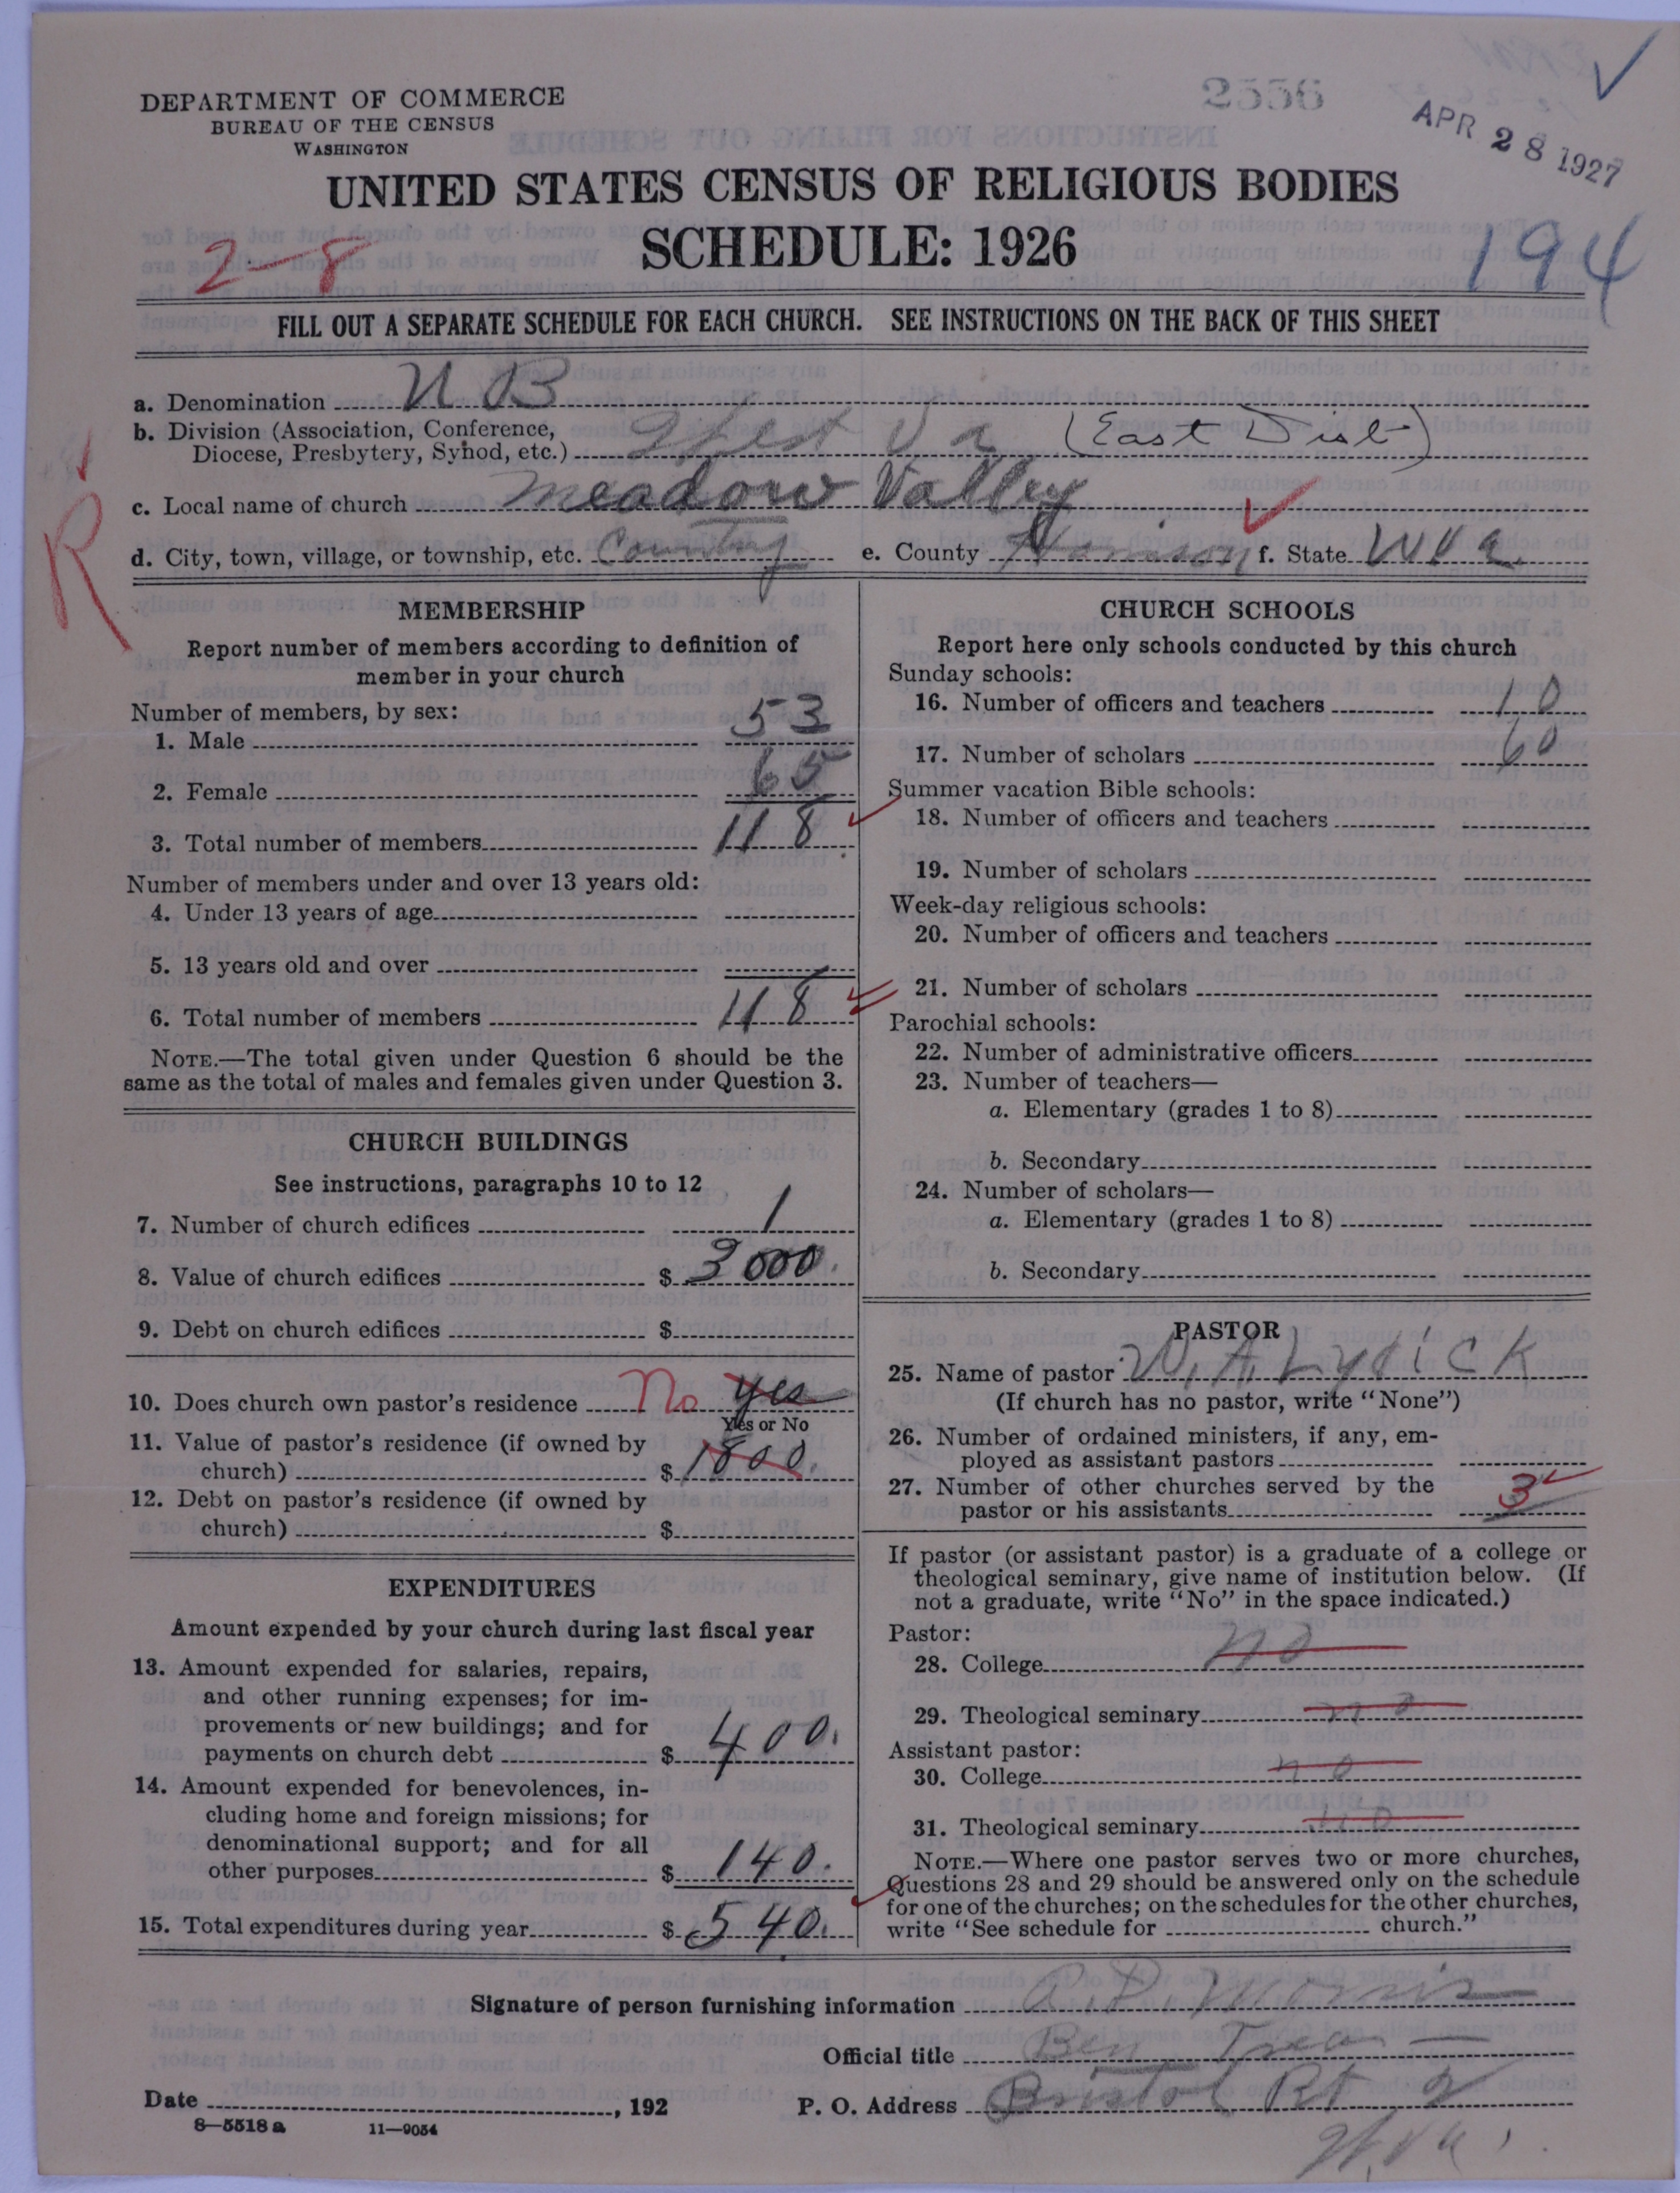 2556
APR 28 1927
DEPARTMENT OF COMMERCE
BUREAU OF THE CENSUS
WASHINGTON
UNITED STATES CENSUS OF RELIGIOUS BODIES
SCHEDULE: 1926
2-8
194
FILL OUT A SEPARATE SCHEDULE FOR EACH CHURCH. SEE INSTRUCTIONS ON THE BACK OF THIS SHEET
a. Denomination U B
b. Division (Association, Conference,
Diocese, Presbytery, Synod, etc.) West Va (East Dist)
c. Local name of church Meadow Valley
d. City, town, village, or township, etc. Country e. County Harrison f. State W Va.
R
MEMBERSHIP
Report number of members according to definition of
member in your church
Number of members, by sex:
1. Male 53
2. Female 65
3. Total number of members 118
Number of members under and over 13 years old:
4. Under 13 years of age
5. 13 years old and over
6. Total number of members 118
NOTE.—The total given under Question 6 should be the
same as the total of males and females given under Question 3.
CHURCH BUILDINGS
See instructions, paragraphs 10 to 12
7. Number of church edifices 1
8. Value of church edifices $ 3000.
9. Debt on church edifices $
10. Does church own pastor's residence No Yes
Yes or No
11. Value of pastor's residence (if owned by
church) $ 1800.
12. Debt on pastor's residence (if owned by
church) $
EXPENDITURES
Amount expended by your church during last fiscal year
13. Amount expended for salaries, repairs,
and other running expenses; for im-
provements or new buildings; and for
payments on church debt $ 400.
14. Amount expended for benevolences, in-
cluding home and foreign missions; for
denominational support; and for all
other purposes $ 140.
15. Total expenditures during year $ 540.
CHURCH SCHOOLS
Report here only schools conducted by this church
Sunday schools:
16. Number of officers and teachers 10
17. Number of scholars 60
Summer vacation Bible schools:
18. Number of officers and teachers
19. Number of scholars
Week-day religious schools:
20. Number of officers and teachers
21. Number of scholars
Parochial schools:
22. Number of administrative officers
23. Number of teachers—
a. Elementary (grades 1 to 8)
b. Secondary
24. Number of scholars—
a. Elementary (grades 1 to 8)
b. Secondary
PASTOR
25. Name of pastor W. A. Lydick
(If church has no pastor, write "None")
26. Number of ordained ministers, if any, em-
ployed as assistant pastors
27. Number of other churches served by the
pastor or his assistants 3
If pastor (or assistant pastor) is a graduate of a college or
theological seminary, give name of institution below. (If
not a graduate, write "No" in the space indicated.)
Pastor:
28. College no
29. Theological seminary no
Assistant pastor:
30. College no
31. Theological seminary no
NOTE.—Where one pastor serves two or more churches,
Questions 28 and 29 should be answered only on the schedule
for one of the churches; on the schedules for the other churches,
write "See schedule for church."
Signature of person furnishing information A. D. Morris
Official title Ben Trea
Date , 192 P. O. Address Bristol Rt 2
W. Va.
8—5518 a 11—9054